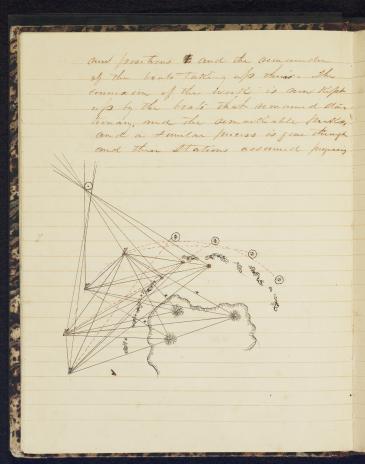 and positions and the remainder
of the boats taking up theirs. The
connexion of the work is now kept
up by the boats that remained stationary, and the remarkable
and a similar process is gone through
and then Stations assumed